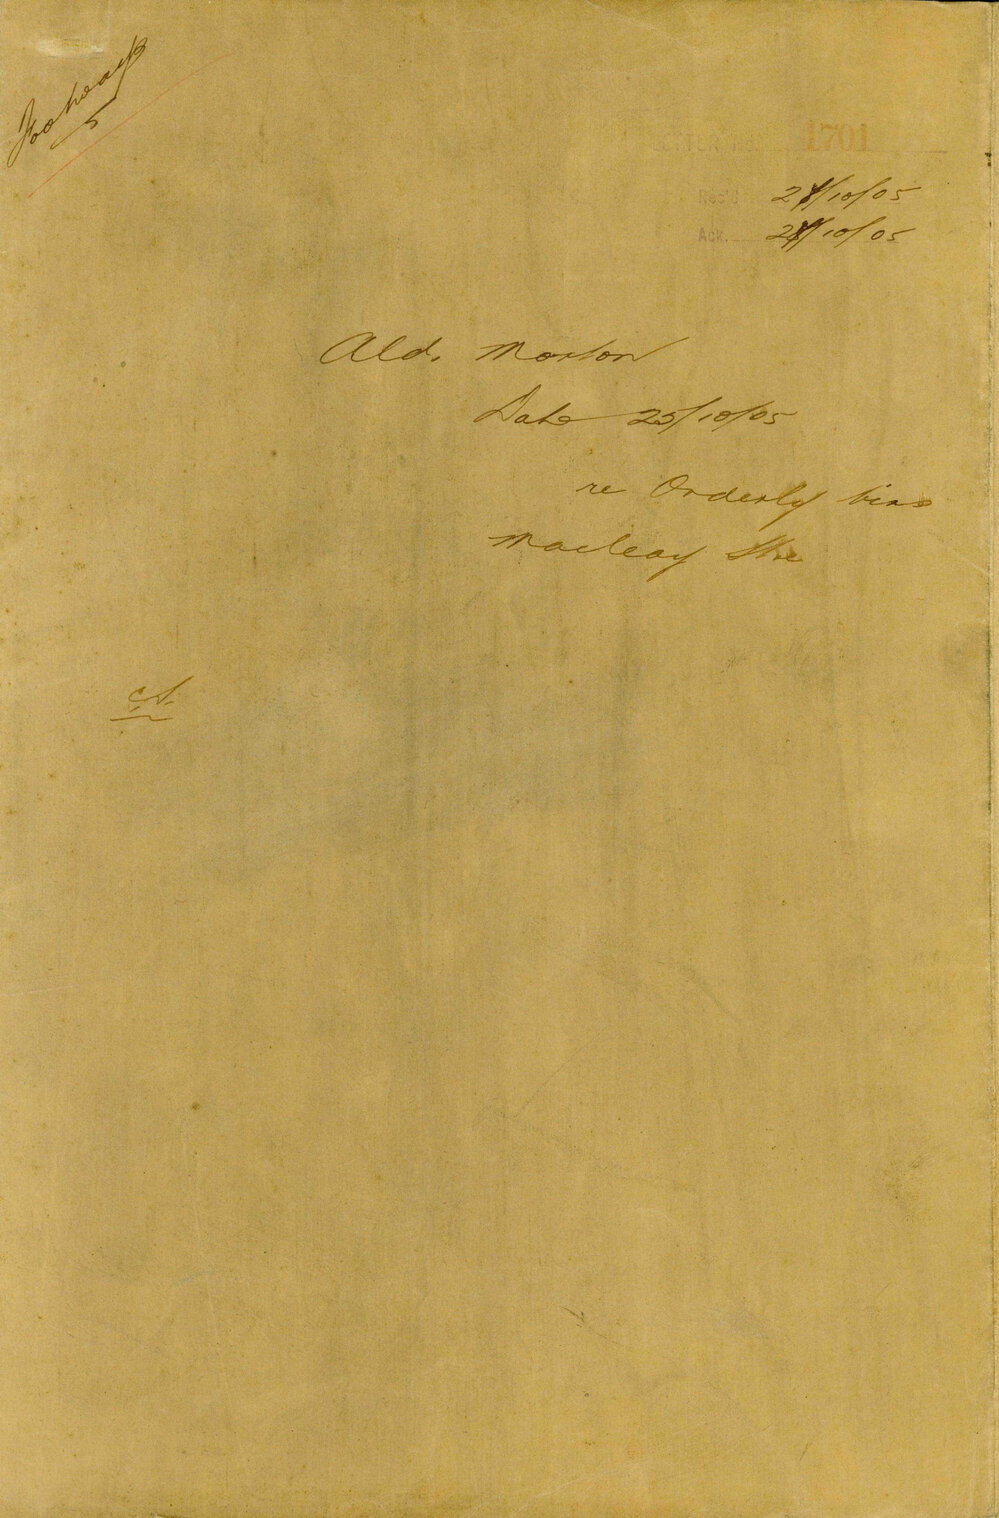 LETTER No. 1701
Rec'd 28/10/05
Ack. 28/10/05
Ald. Morton
Date 25/10/05
re Orderly bins
Macleay Stre